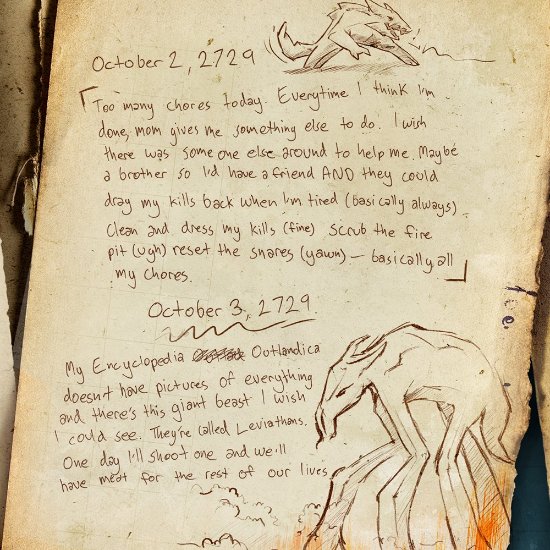 October 2, 2729
Too many chores today. Everytime I think I'm
done, mom gives me something else to do. I wish
there was some one else around to help me. Maybe
a brother so I'd have a friend AND they could
drag my kills back when I'm tired (basically always).
Clean and dress my kills (fine) scrub the fire
pit (ugh) reset the snares (yawn) — basically all
my chores.
October 3, 2729
My Encyclopedia Outlandica
doesn't have pictures of everything
and there's this giant beast I wish
I could see. They're called Leviathans.
One day I'll shoot one and we'll
have meat for the rest of our lives